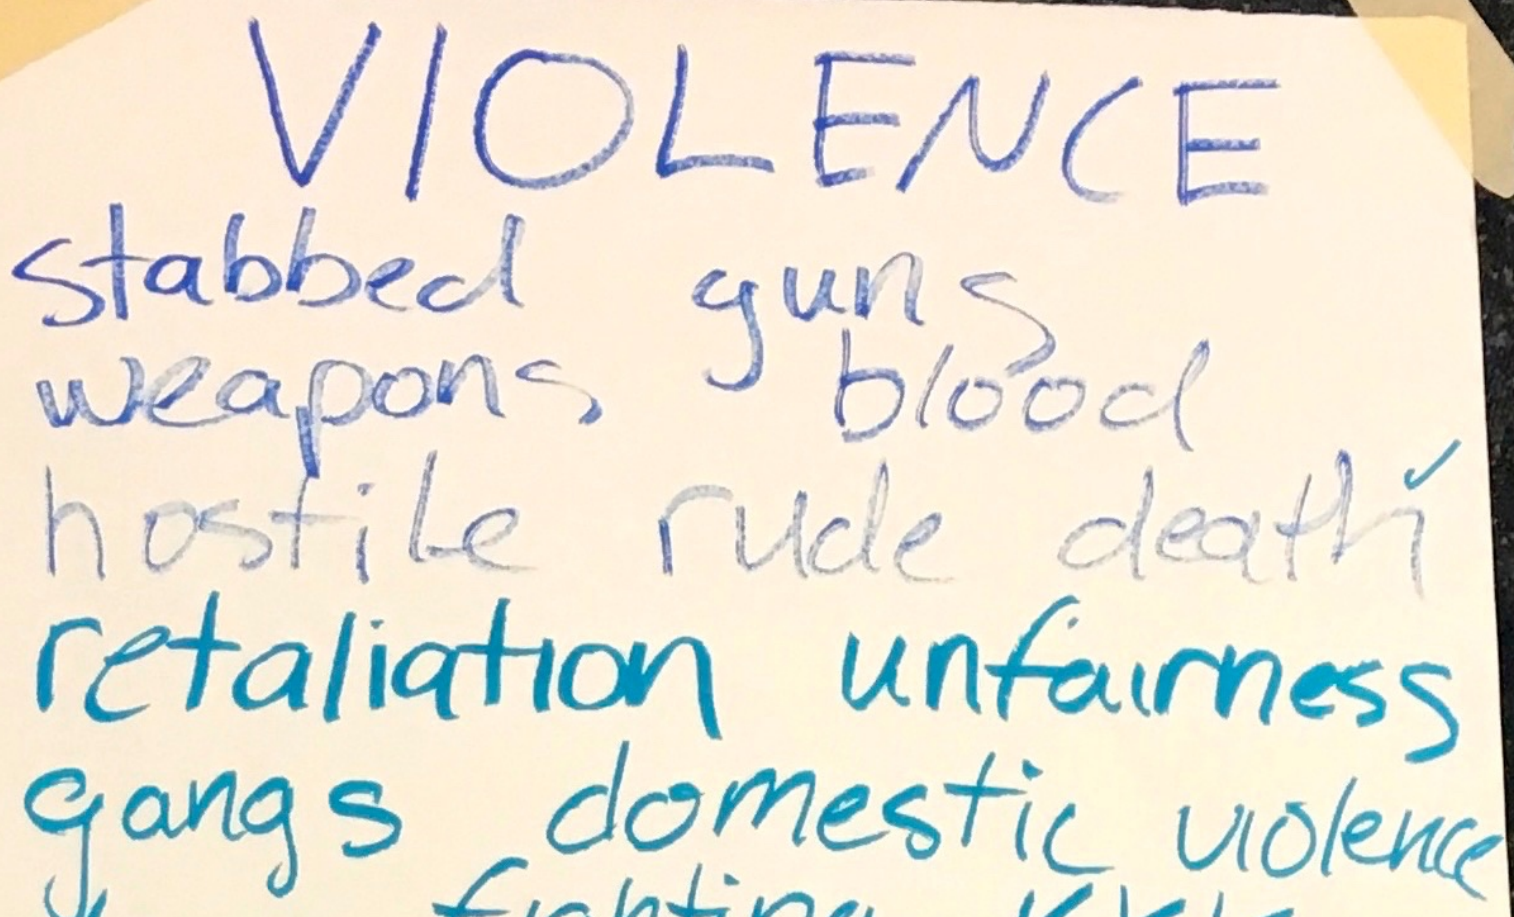 VIOLENCE
stabbed guns
weapons blood
hostile rude death
retaliation unfairness
gangs domestic violence
fighting